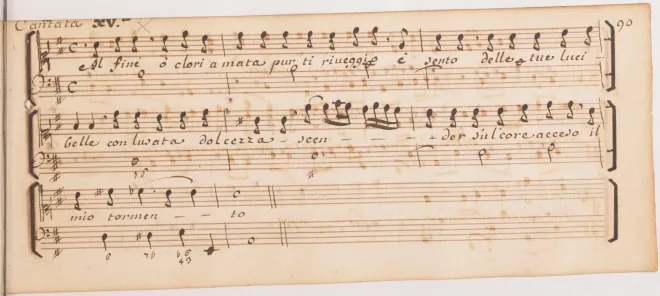 Cantata XV.a
90
Al fine ò clori amata pur ti riveggio è sento delle tue luci
belle con lusata dolcezza - scen - - - - der sul core acceso il
mio tormen - - to